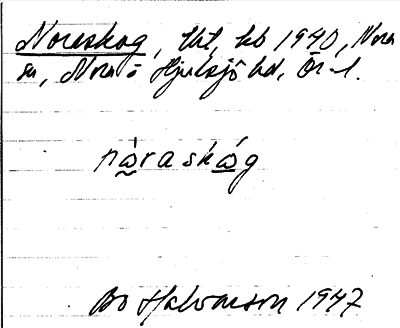 Noreskog, Ut, kb 1940, Nora
sn, Nora o Hjulsjö hd, Ör. l.
nåraskåg
Bo Halvarson 1947